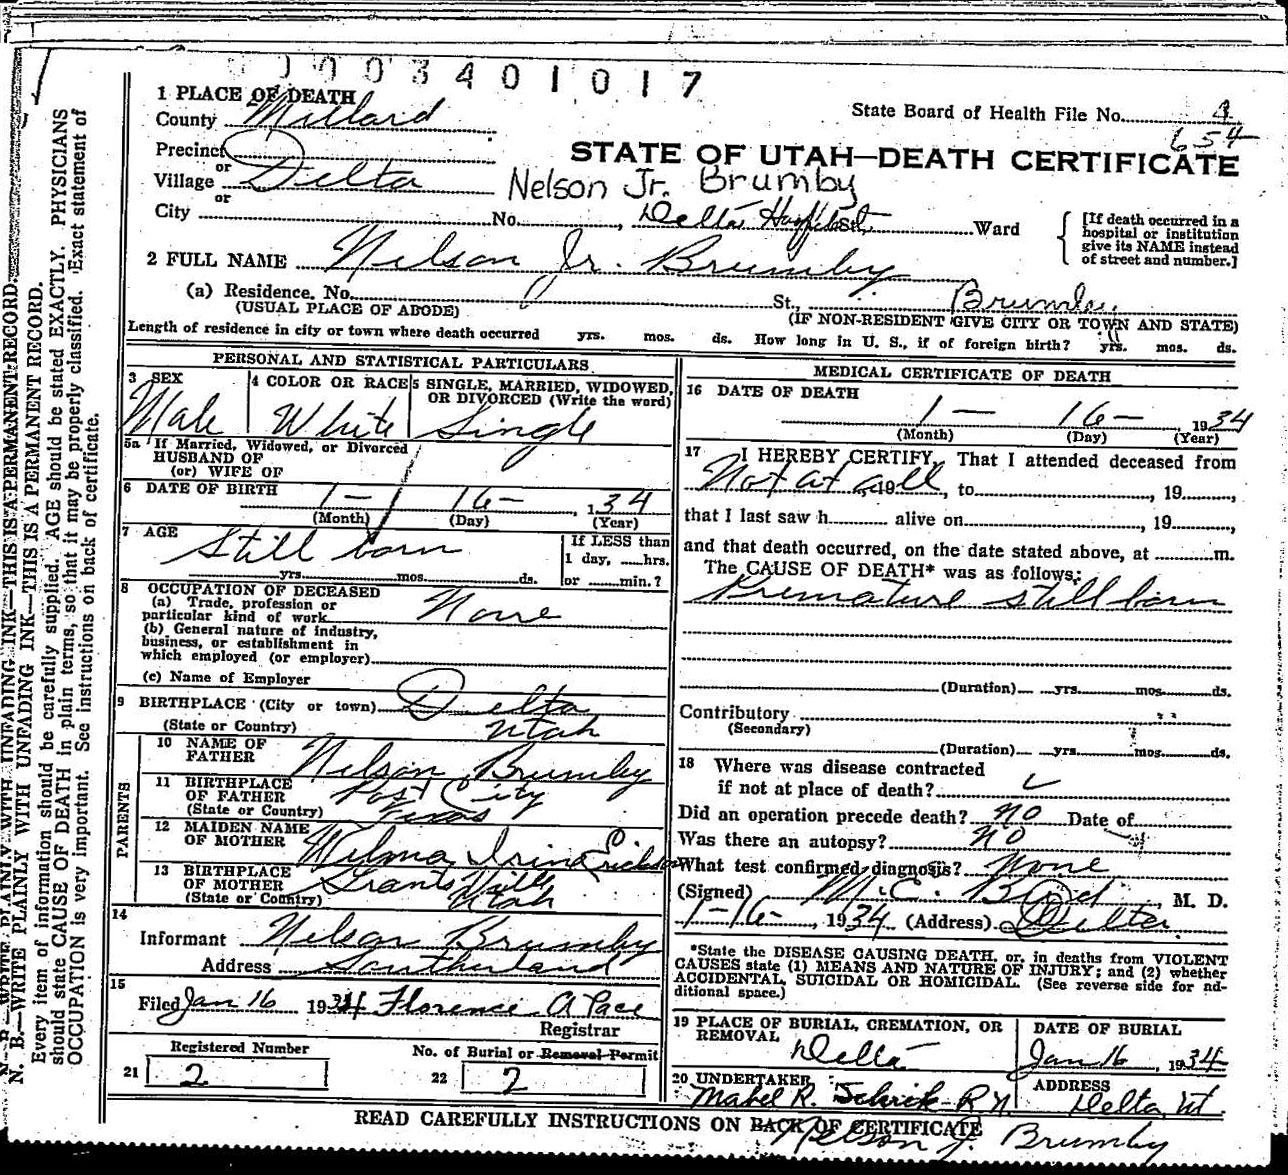 0003401017
1 PLACE OF DEATH
County Millard
State Board of Health File No. 4
654
Precinct
or
Village Delta
or
STATE OF UTAH—DEATH CERTIFICATE
Nelson Jr. Brumby
City No. , Delta Hospital St, Ward
[If death occurred in a hospital or institution give its NAME instead of street and number.]
2 FULL NAME Nelson Jr. Brumby
(a) Residence. No. St.,
(USUAL PLACE OF ABODE) (IF NON-RESIDENT GIVE CITY OR TOWN AND STATE)
Length of residence in city or town where death occurred yrs. mos. ds. How long in U. S., if of foreign birth? yrs. mos. ds.
PERSONAL AND STATISTICAL PARTICULARS
3 SEX 4 COLOR OR RACE 5 SINGLE, MARRIED, WIDOWED, OR DIVORCED (Write the word)
Male White Single
5a If Married, Widowed, or Divorced
HUSBAND OF
(or) WIFE OF
6 DATE OF BIRTH 1- 16- , 1 34
(Month) (Day) (Year)
7 AGE Still born
If LESS than
1 day, hrs.
yrs. mos. ds. or min.?
8 OCCUPATION OF DECEASED
(a) Trade, profession or
particular kind of work None
(b) General nature of industry,
business, or establishment in
which employed (or employer)
(c) Name of Employer
9 BIRTHPLACE (City or town) Delta
(State or Country) Utah
PARENTS
10 NAME OF FATHER Nelson Brumby
11 BIRTHPLACE OF FATHER Post City
(State or Country) Texas
12 MAIDEN NAME OF MOTHER Wilma Irine Erickson
13 BIRTHPLACE OF MOTHER Grantsville
(State or Country) Utah
14
Informant Nelson Brumby
Address Southerland
15
Filed Jan 16 1934 Florence A Pace
Registrar
Registered Number No. of Burial or Removal Permit
21 2 22 2
MEDICAL CERTIFICATE OF DEATH
16 DATE OF DEATH
1- 16- , 1934
(Month) (Day) (Year)
17 I HEREBY CERTIFY, That I attended deceased from
Not at all , 19 , to , 19 ,
that I last saw h alive on , 19 ,
and that death occurred, on the date stated above, at m.
The CAUSE OF DEATH* was as follows:
Premature still born
(Duration) yrs. mos. ds.
Contributory
(Secondary)
(Duration) yrs. mos. ds.
18 Where was disease contracted
if not at place of death?
Did an operation precede death? no Date of
Was there an autopsy? no
What test confirmed diagnosis? None
(Signed) M. E. Bird , M. D.
1-16- , 1934 (Address) Delta
*State the DISEASE CAUSING DEATH, or, in deaths from VIOLENT
CAUSES state (1) MEANS AND NATURE OF INJURY; and (2) whether
ACCIDENTAL, SUICIDAL OR HOMICIDAL. (See reverse side for ad-
ditional space.)
19 PLACE OF BURIAL, CREMATION, OR REMOVAL DATE OF BURIAL
Delta Jan 16 , 1934
20 UNDERTAKER ADDRESS
Mabel R. R.N. Delta, Ut.
READ CAREFULLY INSTRUCTIONS ON BACK OF CERTIFICATE
Nelson J. Brumby
N. B.—WRITE PLAINLY WITH UNFADING INK—THIS IS A PERMANENT RECORD.
N. B.—WRITE PLAINLY WITH UNFADING INK—THIS IS A PERMANENT RECORD.
Every item of information should be carefully supplied. AGE should be stated EXACTLY. PHYSICIANS
should state CAUSE OF DEATH in plain terms, so that it may be properly classified. Exact statement of
OCCUPATION is very important. See Instructions on back of certificate.